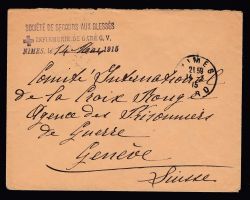 SOCIÉTÉ DE SECOURS AUX BLESSÉS
INFIRMERIE DE GARE G. V.
NIMES, le 14 Mars 1915
NIMES
Comité International
de la Croix Rouge
Agence des Prisonniers
de Guerre
Genève
Suisse